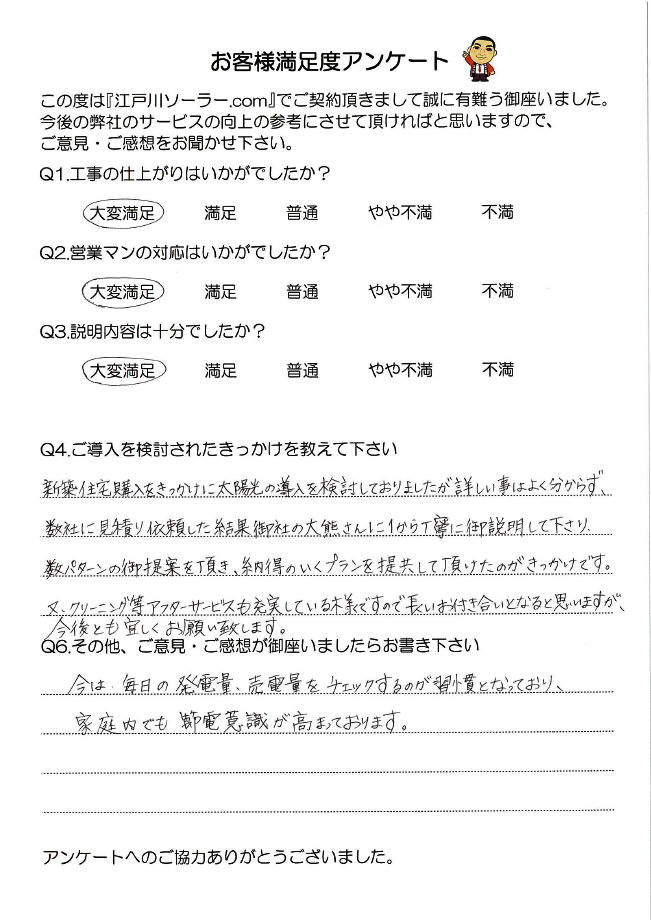 お客様満足度アンケート
この度は『江戸川ソーラー.com』でご契約頂きまして誠に有難う御座いました。
今後の弊社のサービスの向上の参考にさせて頂ければと思いますので、
ご意見・ご感想をお聞かせ下さい。
Q1.工事の仕上がりはいかがでしたか?
大変満足 満足 普通 やや不満 不満
Q2.営業マンの対応はいかがでしたか?
大変満足 満足 普通 やや不満 不満
Q3.説明内容は十分でしたか?
大変満足 満足 普通 やや不満 不満
Q4.ご導入を検討されたきっかけを教えて下さい
新築住宅購入をきっかけに太陽光の導入を検討しておりましたが詳しい事はよく分からず、
数社に見積り依頼した結果御社の大熊さんに1から丁寧に御説明して下さり、
数パターンの御提案を頂き、納得のいくプランを提共して頂けたのがきっかけです。
又、クリーニング等アフターサービスも充実している様ですので長いお付き合いとなると思いますが、
今後とも宜しくお願い致します。
Q6.その他、ご意見・ご感想が御座いましたらお書き下さい
今は、毎日の発電量、売電量をチェックするのが習慣となっており、
家庭内でも節電意識が高まっております。
アンケートへのご協力ありがとうございました。